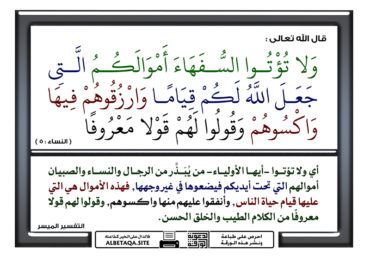 قال الله تعالى :
وَلا تُؤْتُــوا السُّــفَهَاءَ أَمْوَالَكُــمُ الَّتِــي
جَعَــلَ اللَّهُ لَكُــمْ قِيَامًــا وَارْزُقُوهُــمْ فِيهَا
وَاكْسُوهُمْ وَقُولُوا لَهُمْ قَوْلا مَعْرُوفًا
( النساء : ٥ )
أي ولا تؤتوا -أيها الأولياء- من يُبَذِّر من الرجال والنساء والصبيان
أموالهم التي تحت أيديكم فيضعوها في غير وجهها, فهذه الأموال هي التي
عليها قيام حياة الناس, وأنفقوا عليهم منها واكسوهم, وقولوا لهم قولا
معروفًا من الكلام الطيب والخلق الحسن.
التفسير الميسر
احرص على طباعة
ونشر هذه الورقة
فالدال على الخير كفاعله
ALBETAQA.SITE